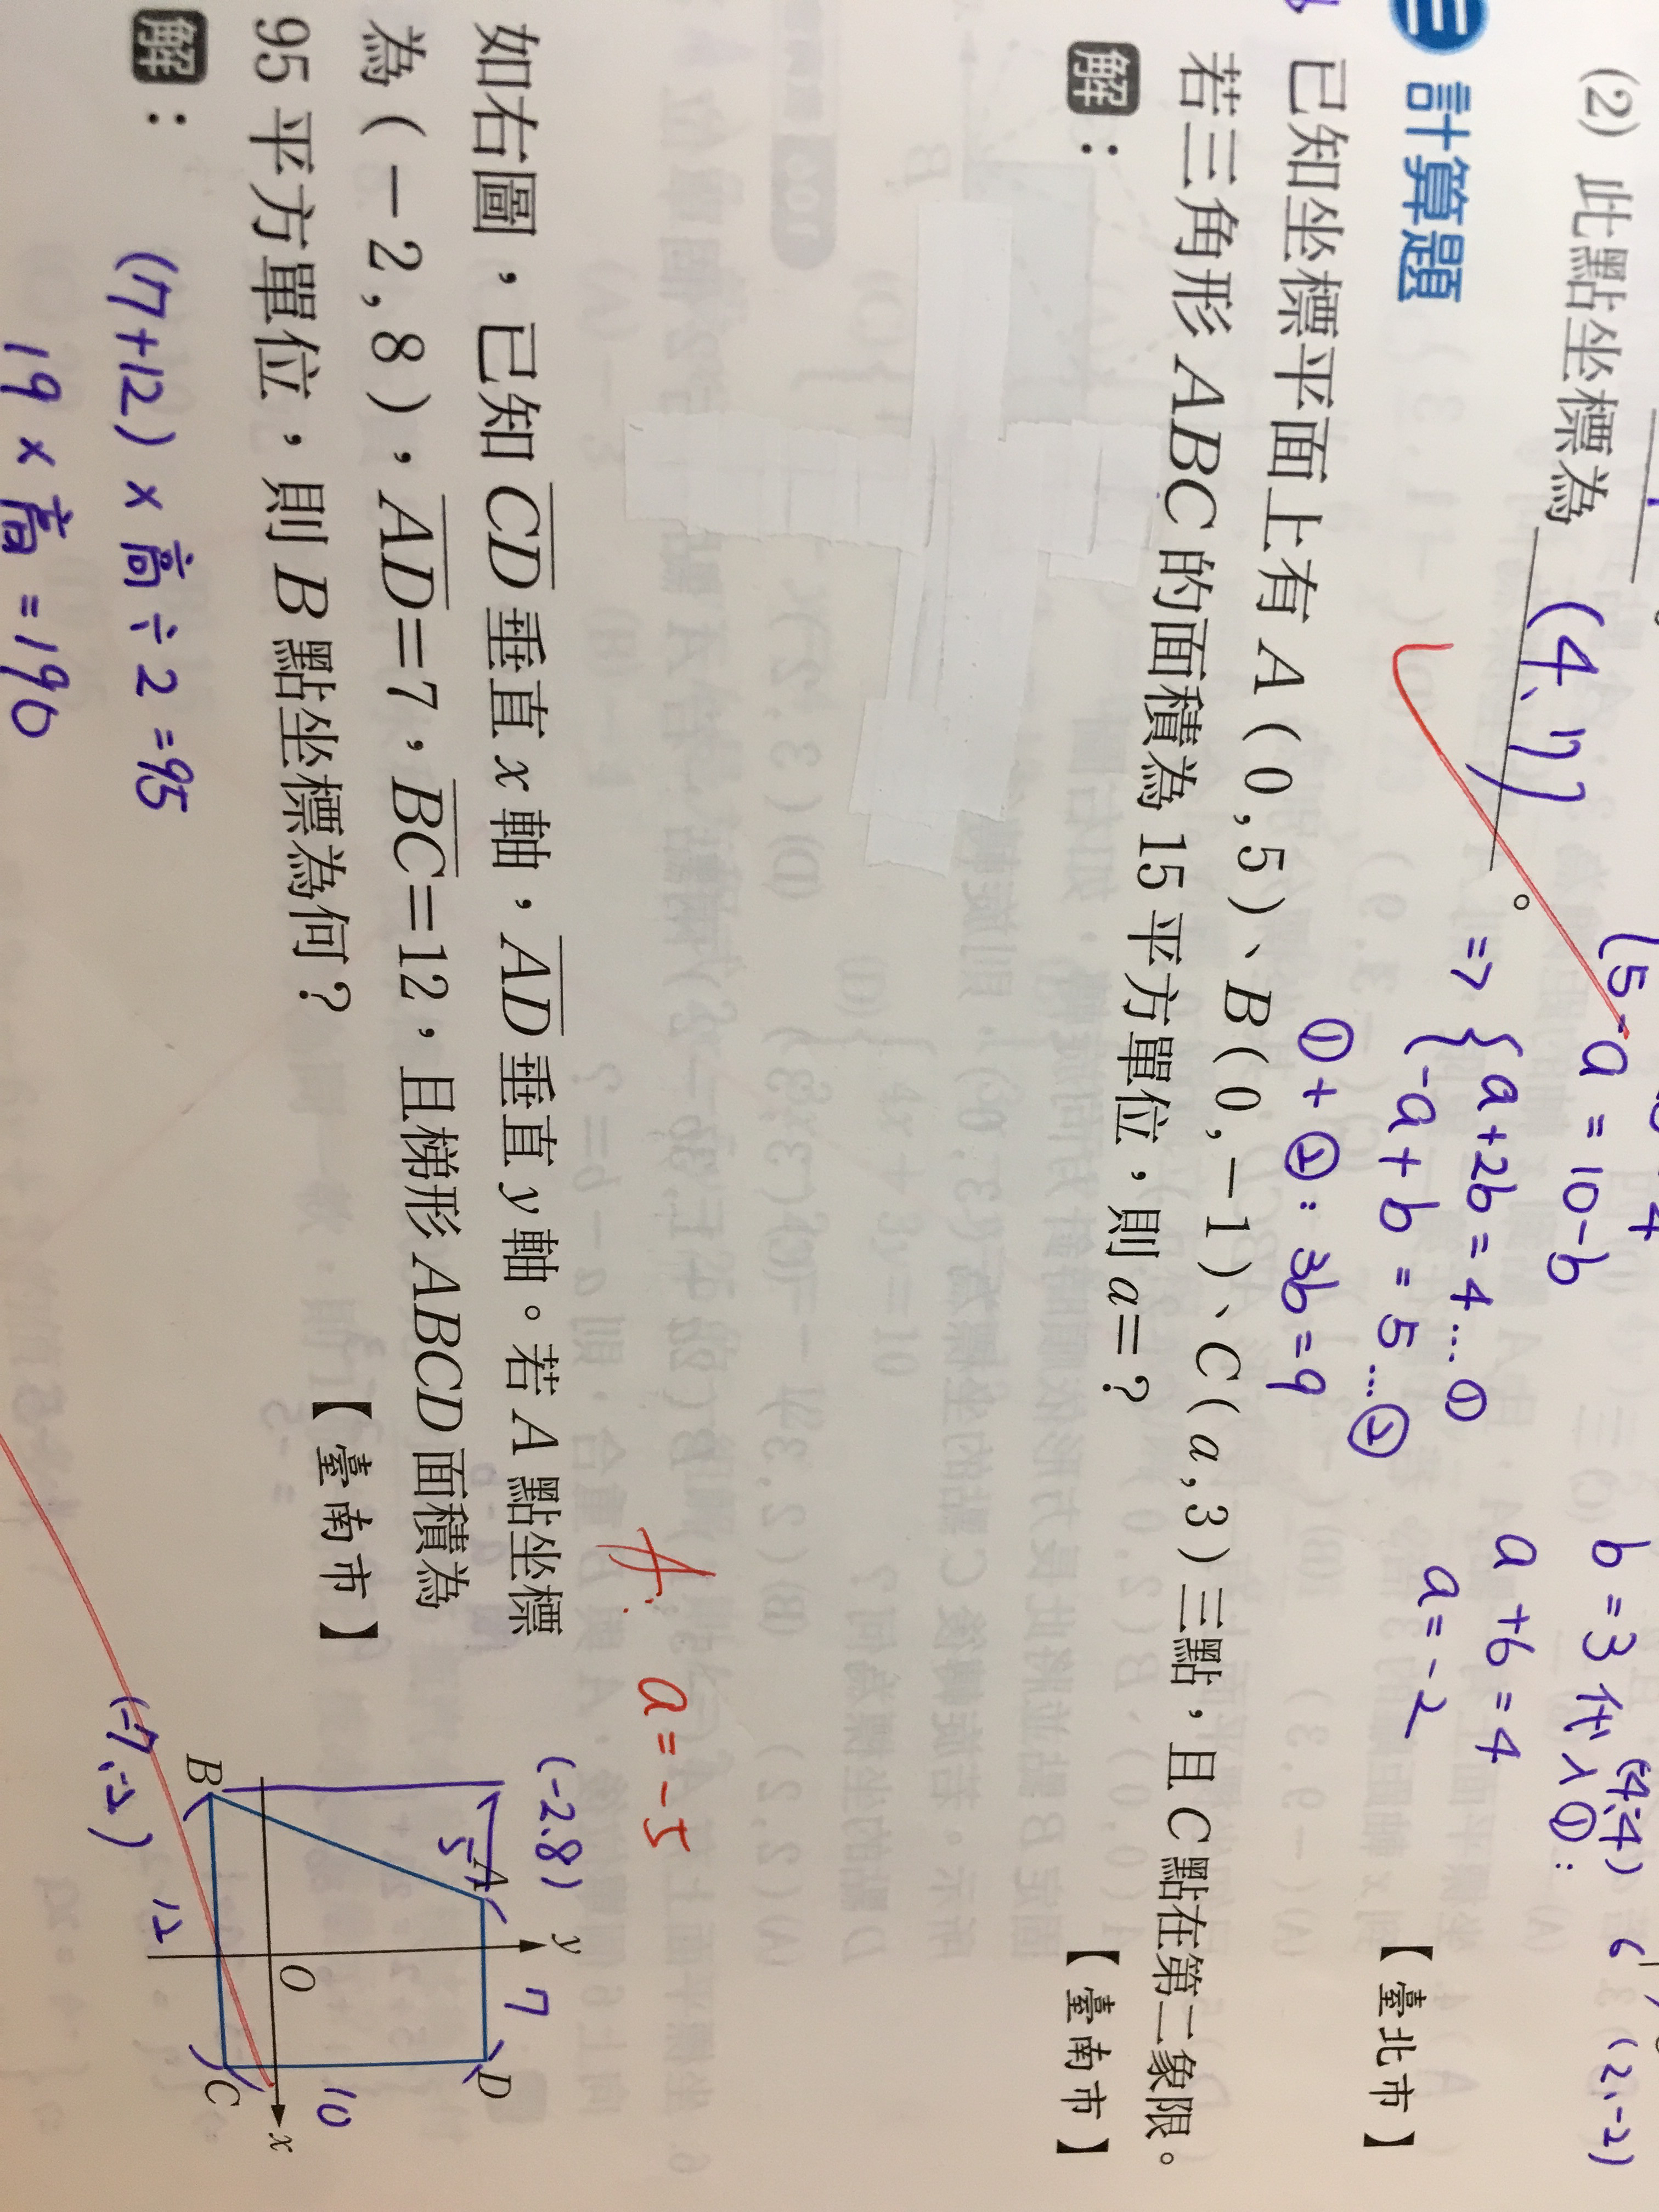 (2) 此點坐標為 (4、7) 。
(5-a=10-b
=> { a+2b=4...①
-a+b=5...②
①+②:3b=9
b=3代入①:
a+6=4
a=-2
(2,-2)
三 計算題
【臺北市】
已知坐標平面上有 A(0,5)、B(0,-1)、C(a,3)三點,且 C 點在第二象限。
若三角形 ABC 的面積為 15 平方單位,則 a=?
【臺南市】
解:
A: a=-5
如右圖,已知 CD 垂直 x 軸,AD 垂直 y 軸。若 A 點坐標
為(-2,8),AD=7,BC=12,且梯形 ABCD 面積為
95 平方單位,則 B 點坐標為何?
【臺南市】
解:
(7+12)×高÷2=95
19×高=190
(-2.8)
y
5
A
7
D
10
O
x
B
C
12
(-7,-2)